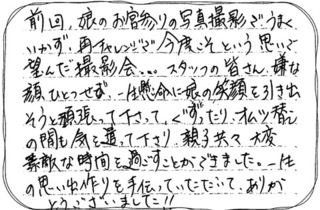 前回、娘のお宮参りの写真撮影でうまく
いかず、再チャレンジで今度こそという思いで
望んだ撮影会...。スタッフの皆さん、嫌な
顔ひとつせず、一生懸命に娘の笑顔を引き出
そうと頑張って下さって、ぐずったり、オムツ替え
の間も気を遣って下さり、親子共々大変
素敵な時間を過ごすことができました。一生
の思い出作りを手伝っていただいて、ありが
とうございました!!